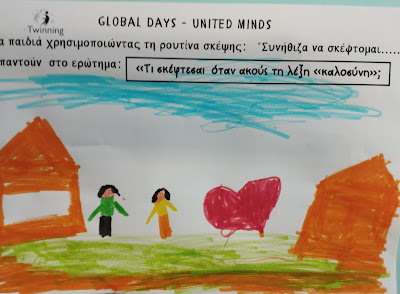 GLOBAL DAYS - UNITED MINDS
Twinning
α παιδιά χρησιμοποιώντας τη ρουτίνα σκέψης: ¨Συνήθιζα να σκέφτομαι.....
παντούν στο ερώτημα: «Τι σκέφτεσαι όταν ακούς τη λέξη «καλοσύνη»;